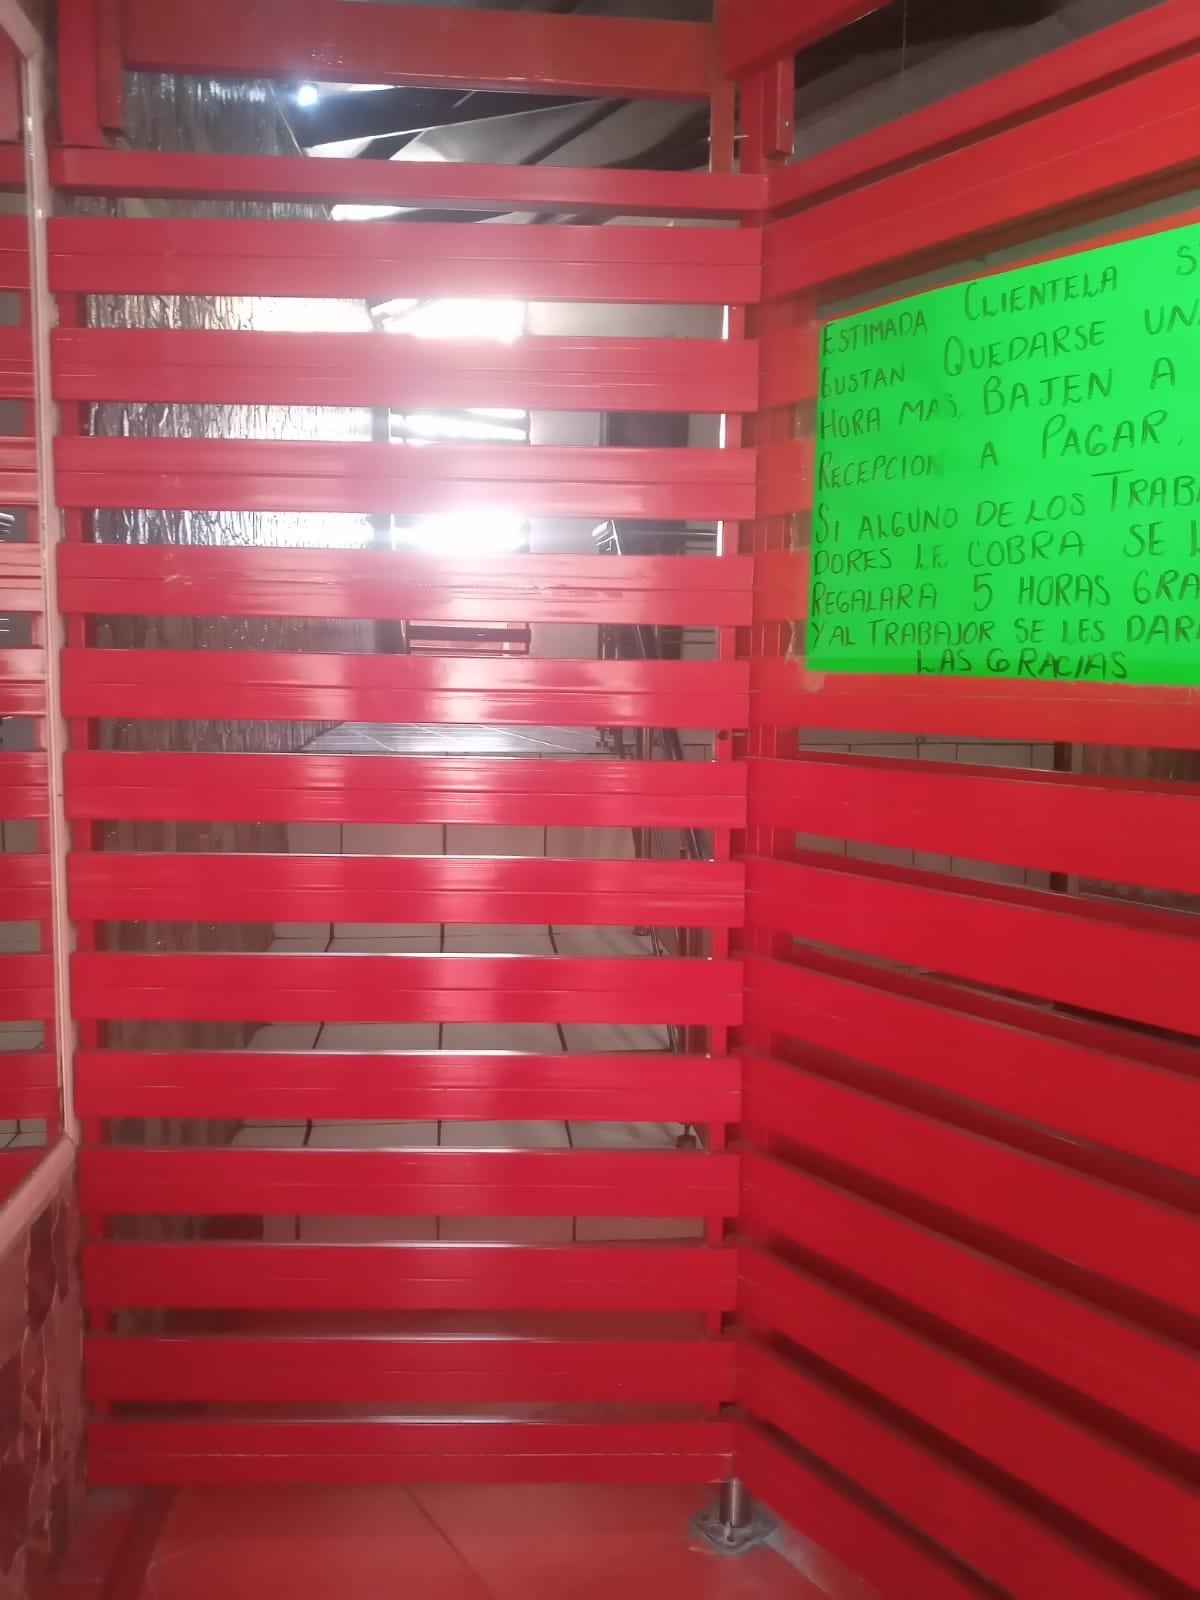 ESTIMADA CLIENTELA S
GUSTAN QUEDARSE UN
HORA MAS, BAJEN A
RECEPCION A PAGAR.
SI ALGUNO DE LOS TRABA
DORES LE COBRA SE L
REGALARA 5 HORAS GRA
Y AL TRABAJOR SE LES DAR
LAS GRACIAS